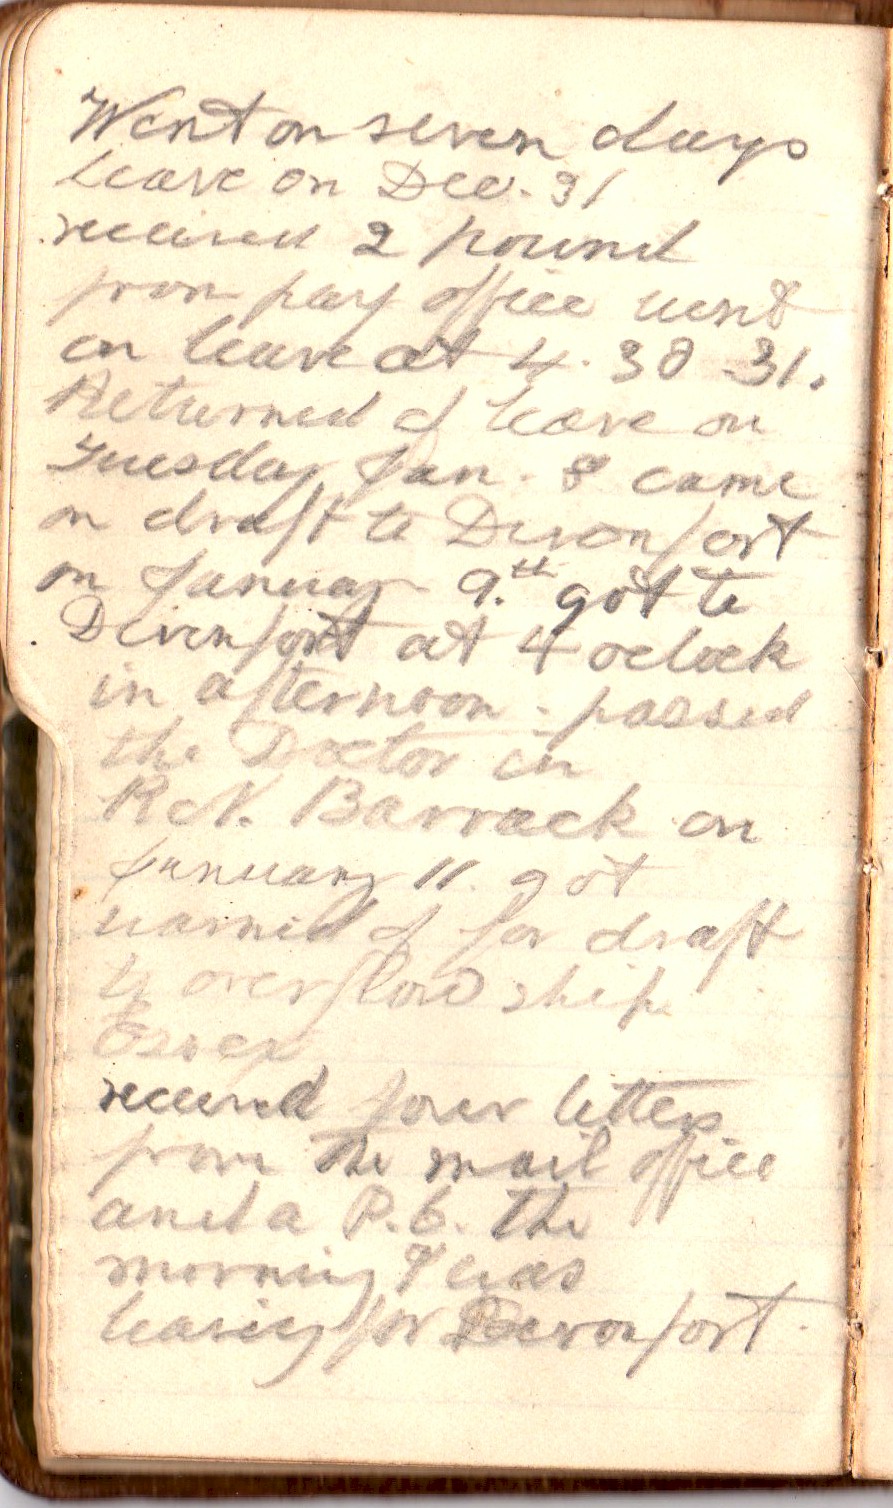 Went on seven days
leave on Dec. 31
received 2 pound
from pay office went
on leave at 4.30 31.
Returned of leave on
Tuesday Jan. 8 came
on draft to Devonport
on January 9.th got to
Devenport at 4 oclock
in afternoon. passed
the Doctor in
R.N. Barrack on
January 11. got
warned of for draft
to overflow ship
Essex
received four letters
from the mail office
and a P.C. the
morning I was
leaving for Devonport.